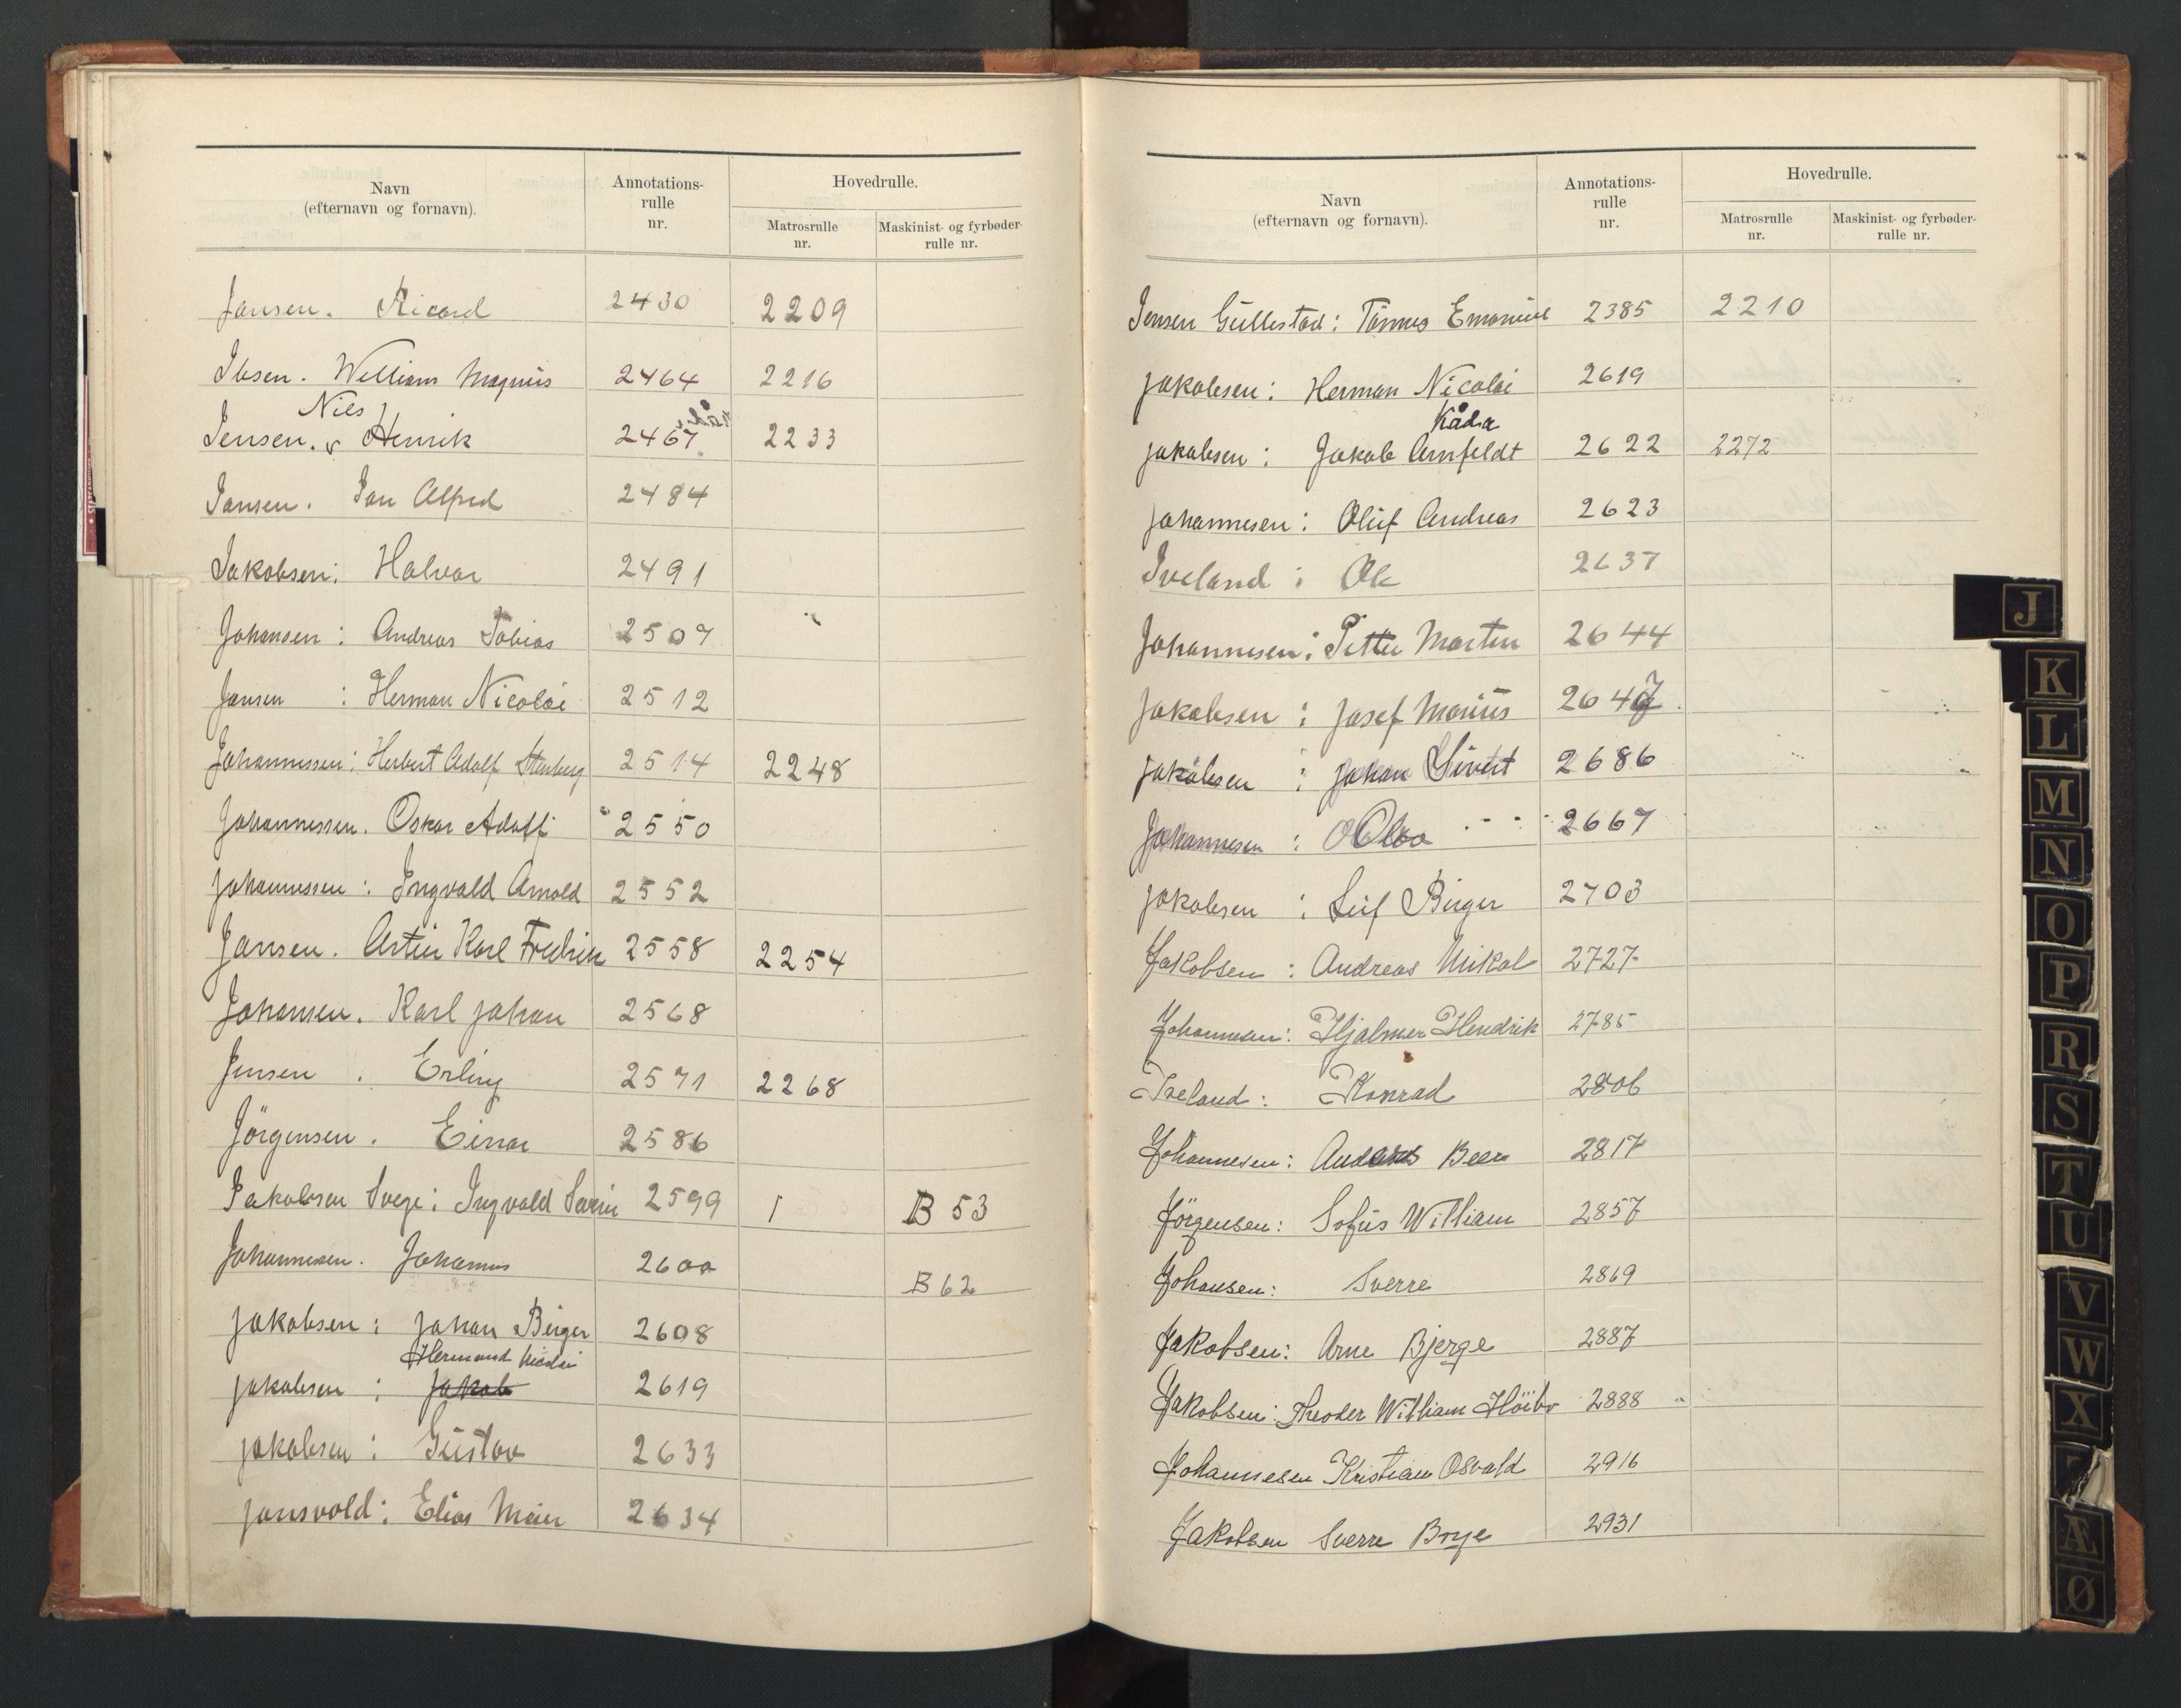 Navn
(efternavn og fornavn).
Annotations-
rulle
nr.
Hovedrulle.
Matrosrulle
nr.
Maskinist- og fyrbøder-
rulle nr.
Jansen. Ricard 2430 2209
Ibsen. William Magnus 2464 2216
Nils
Jensen. v Henrik 2467 2233
Jansen. Jan Alfred 2484
Jakobsen: Halvar 2491
Johansen: Andreas Tobias 2507
Jansen : Herman Nicolai 2512
Johannessen: Herbert Adolf Stenberg 2514 2248
Johannessen. Oskar Adolf 2550
Johannessen: Ingvald Arnold 2552
Jansen. Artur Karl Fredrik 2558 2254
Johansen. Karl Johan 2568
Jensen . Erling 2571 2268
Jörgensen. Einar 2586
Jakobsen Svege: Ingvald Severin 2599 1 B 53
Johannesen. Johannes 2600 B 62
Jakobsen: Johan Birger 2608
Hermand Nicolai
Jakobsen : Jakob 2619
Jakobsen : Gustav 2633
Jonsvold: Elias Meier 2634
Navn
(efternavn og fornavn).
Annotations-
rulle
nr.
Hovedrulle.
Matrosrulle
nr.
Maskinist- og fyrbøder-
rulle nr.
Jensen Gullestad: Tönnes Emanuel 2385 2210
Jakobsen: Herman Nicolai 2619
Kåda
Jakobsen : Jakob Arnfeldt 2622 2272
Johannesen: Oluf Andreas 2623
Iveland : Ole 2637
Johannesen: Petter Martin 2644
Jakobsen : Josef Marius 2647
Jakobsen : Johan Sivert 2686
Johannesen : Olav 2667
Jakobsen : Leif Birger 2703
Jakobsen : Andreas Mikal 2727
Johannesen: Hjalmer Hendrik 2785
Iveland: Konrad 2806
Johannesen: Anders Beer 2817
Jörgensen: Sofus William 2857
Johansen: Sverre 2869
Jakobsen: Arne Bjerge 2887
Jakobsen: Theoder William Höibo 2888
Johannesen Kristian Osvald 2916
Jakobsen Sverre Brye 2931
J
K
L
M
N
O
P
R
S
T
U
V
W
X
Æ
Ø